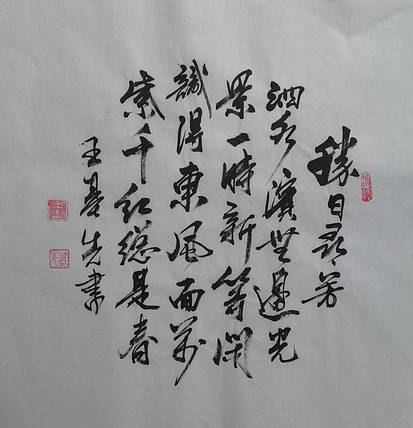 勝日尋芳
泗水濱無邊光
景一時新等閑
識得東風面萬
紫千紅總是春
王 先書